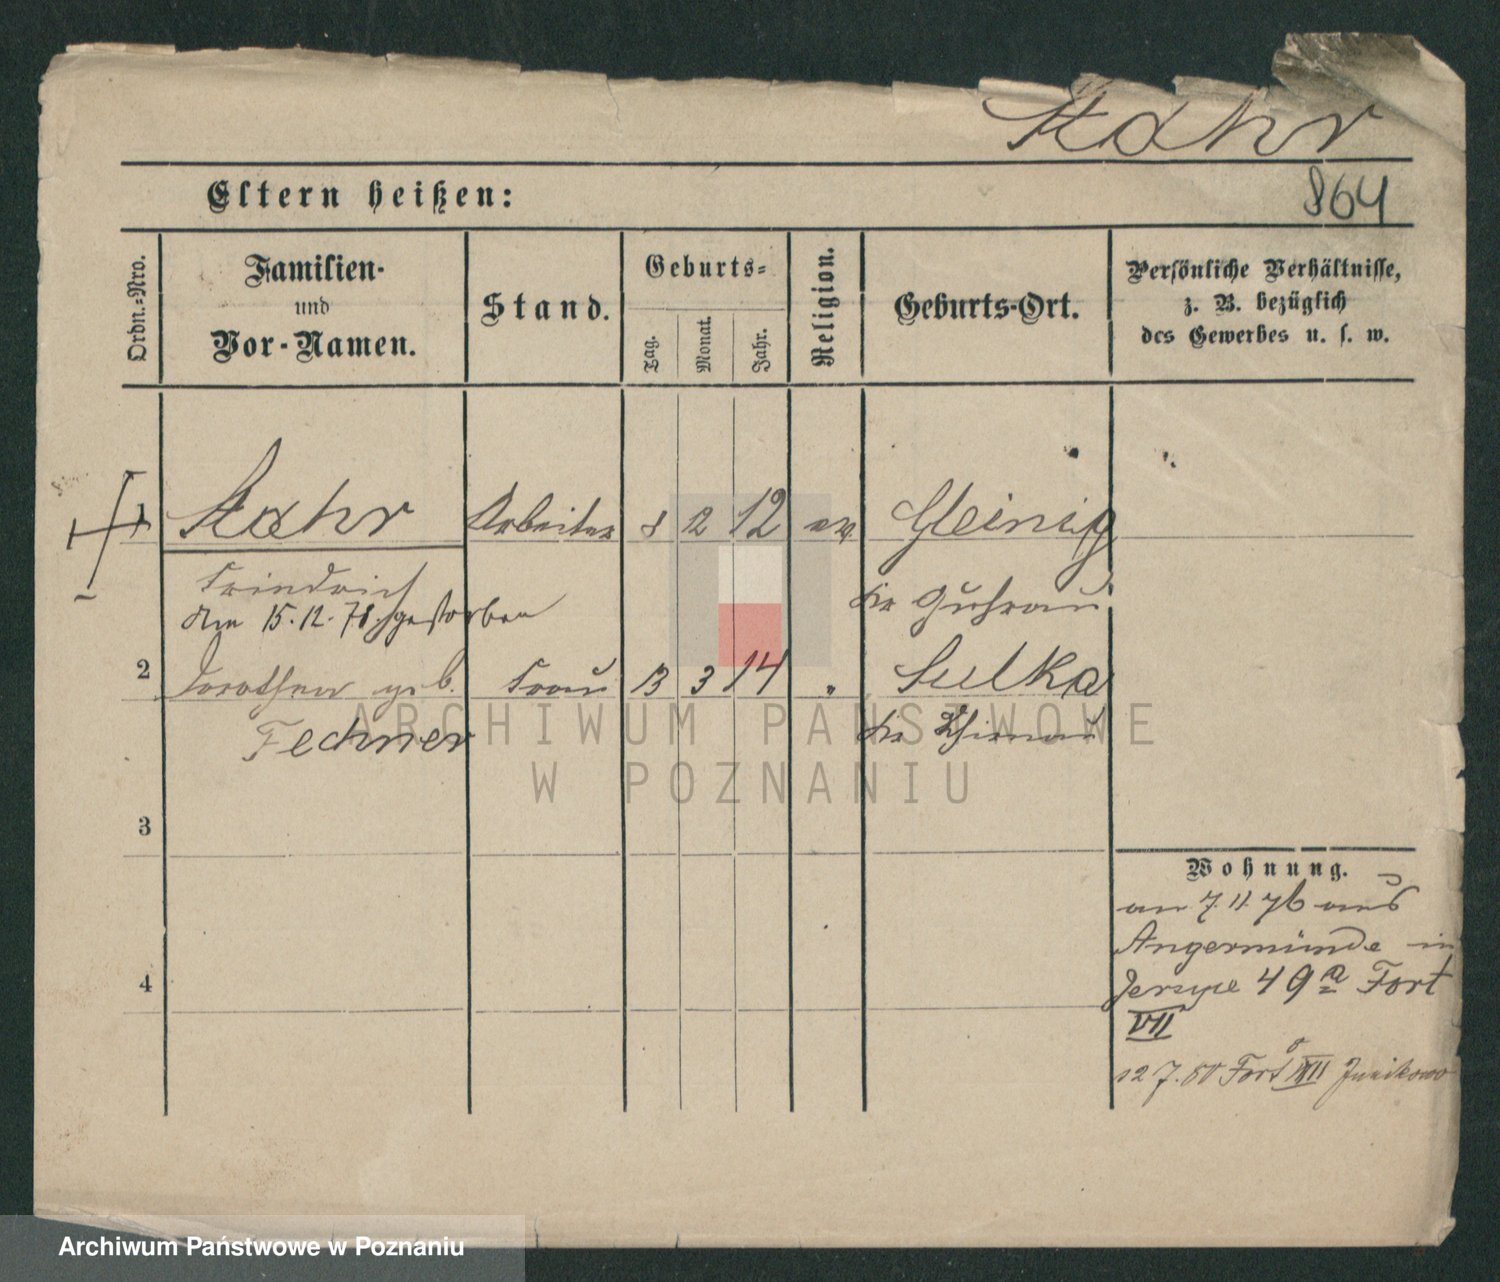 Stahr
864
Eltern heißen:
Ordn.-Nro.
Familien-
und
Vor-Namen.
Stand.
Geburts-
Tag.
Monat.
Jahr.
Religion.
Geburts-Ort.
Persönliche Verhältnisse,
z. B. bezüglich
des Gewerbes u. s. w.
1 Stahr Arbeiter 8 12 12 ev. Gleinig
Friedrich Kr Guhrau
Am 15.12.78 gestorben
2 Dorothea geb. Frau 13 3 14 " Sulka
Fechner Kr
3
4
Wohnung.
am 7.11.76 aus
Angermünde in
Jersyce 49a Fort
VII
12 7.80 Fort Junikowo
ARCHIWUM PAŃSTWOWE
W POZNANIU
Archiwum Państwowe w Poznaniu